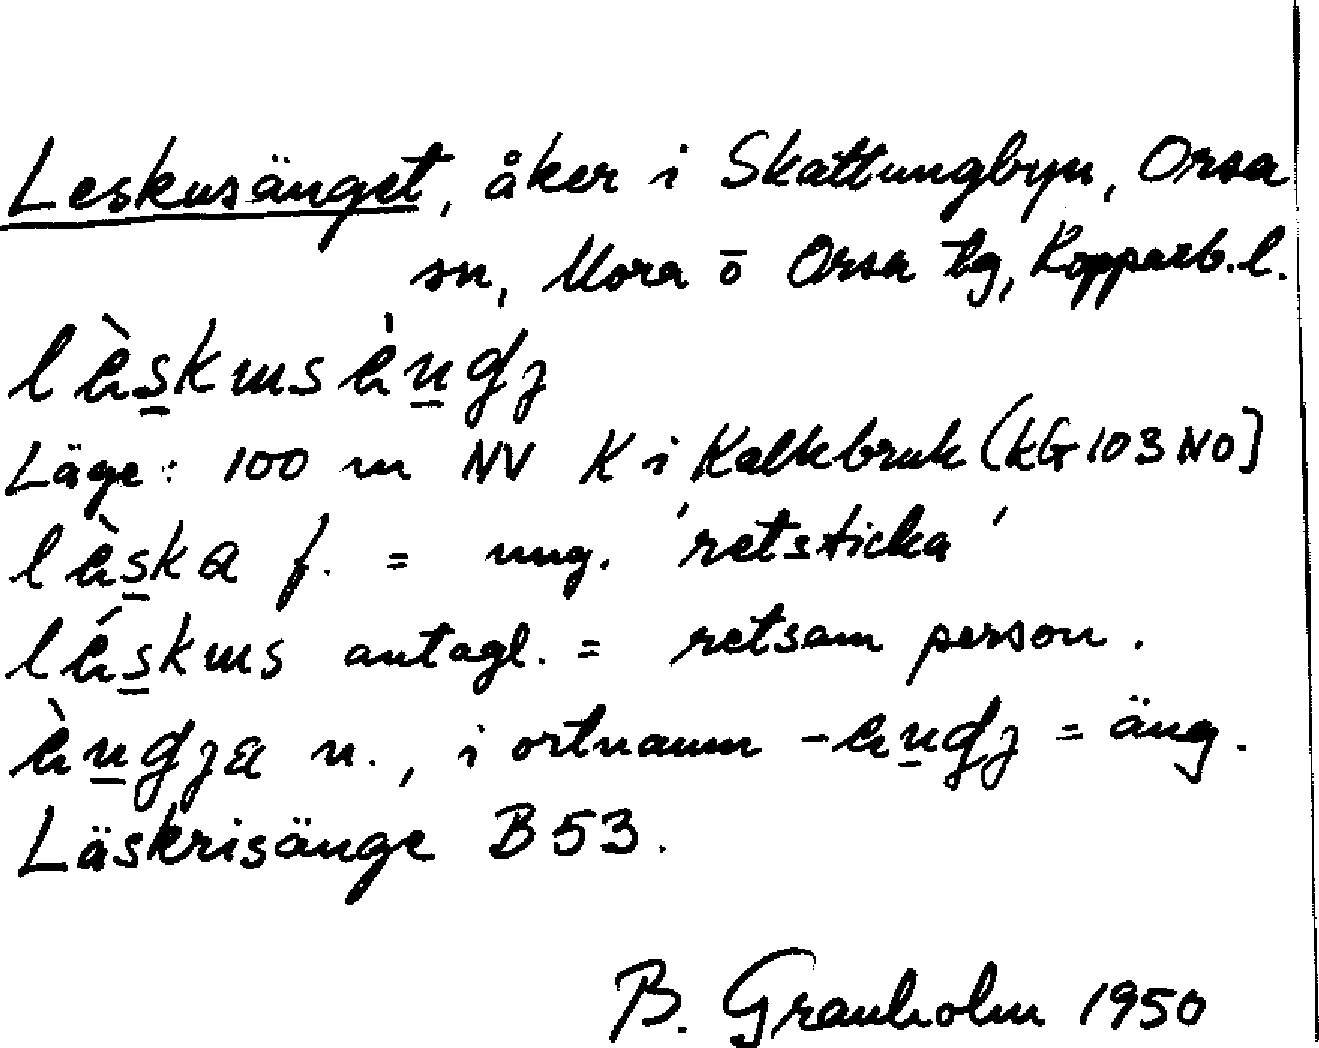 Leskusänget, åker i Skattungbyn, Orsa
sn, Mora o Orsa tg, Kopparb.l.
lä̀skusä̀ngʒ
Läge: 100 m NV K i Kalkbruk (KG103NO]
lä̀ska f. = ung. 'retsticka'
lä́skus antagl. = retsam person.
ä̀ngʒa n., i ortnamn -ängʒ = äng.
Läskrisänge B53.
B. Granholm 1950